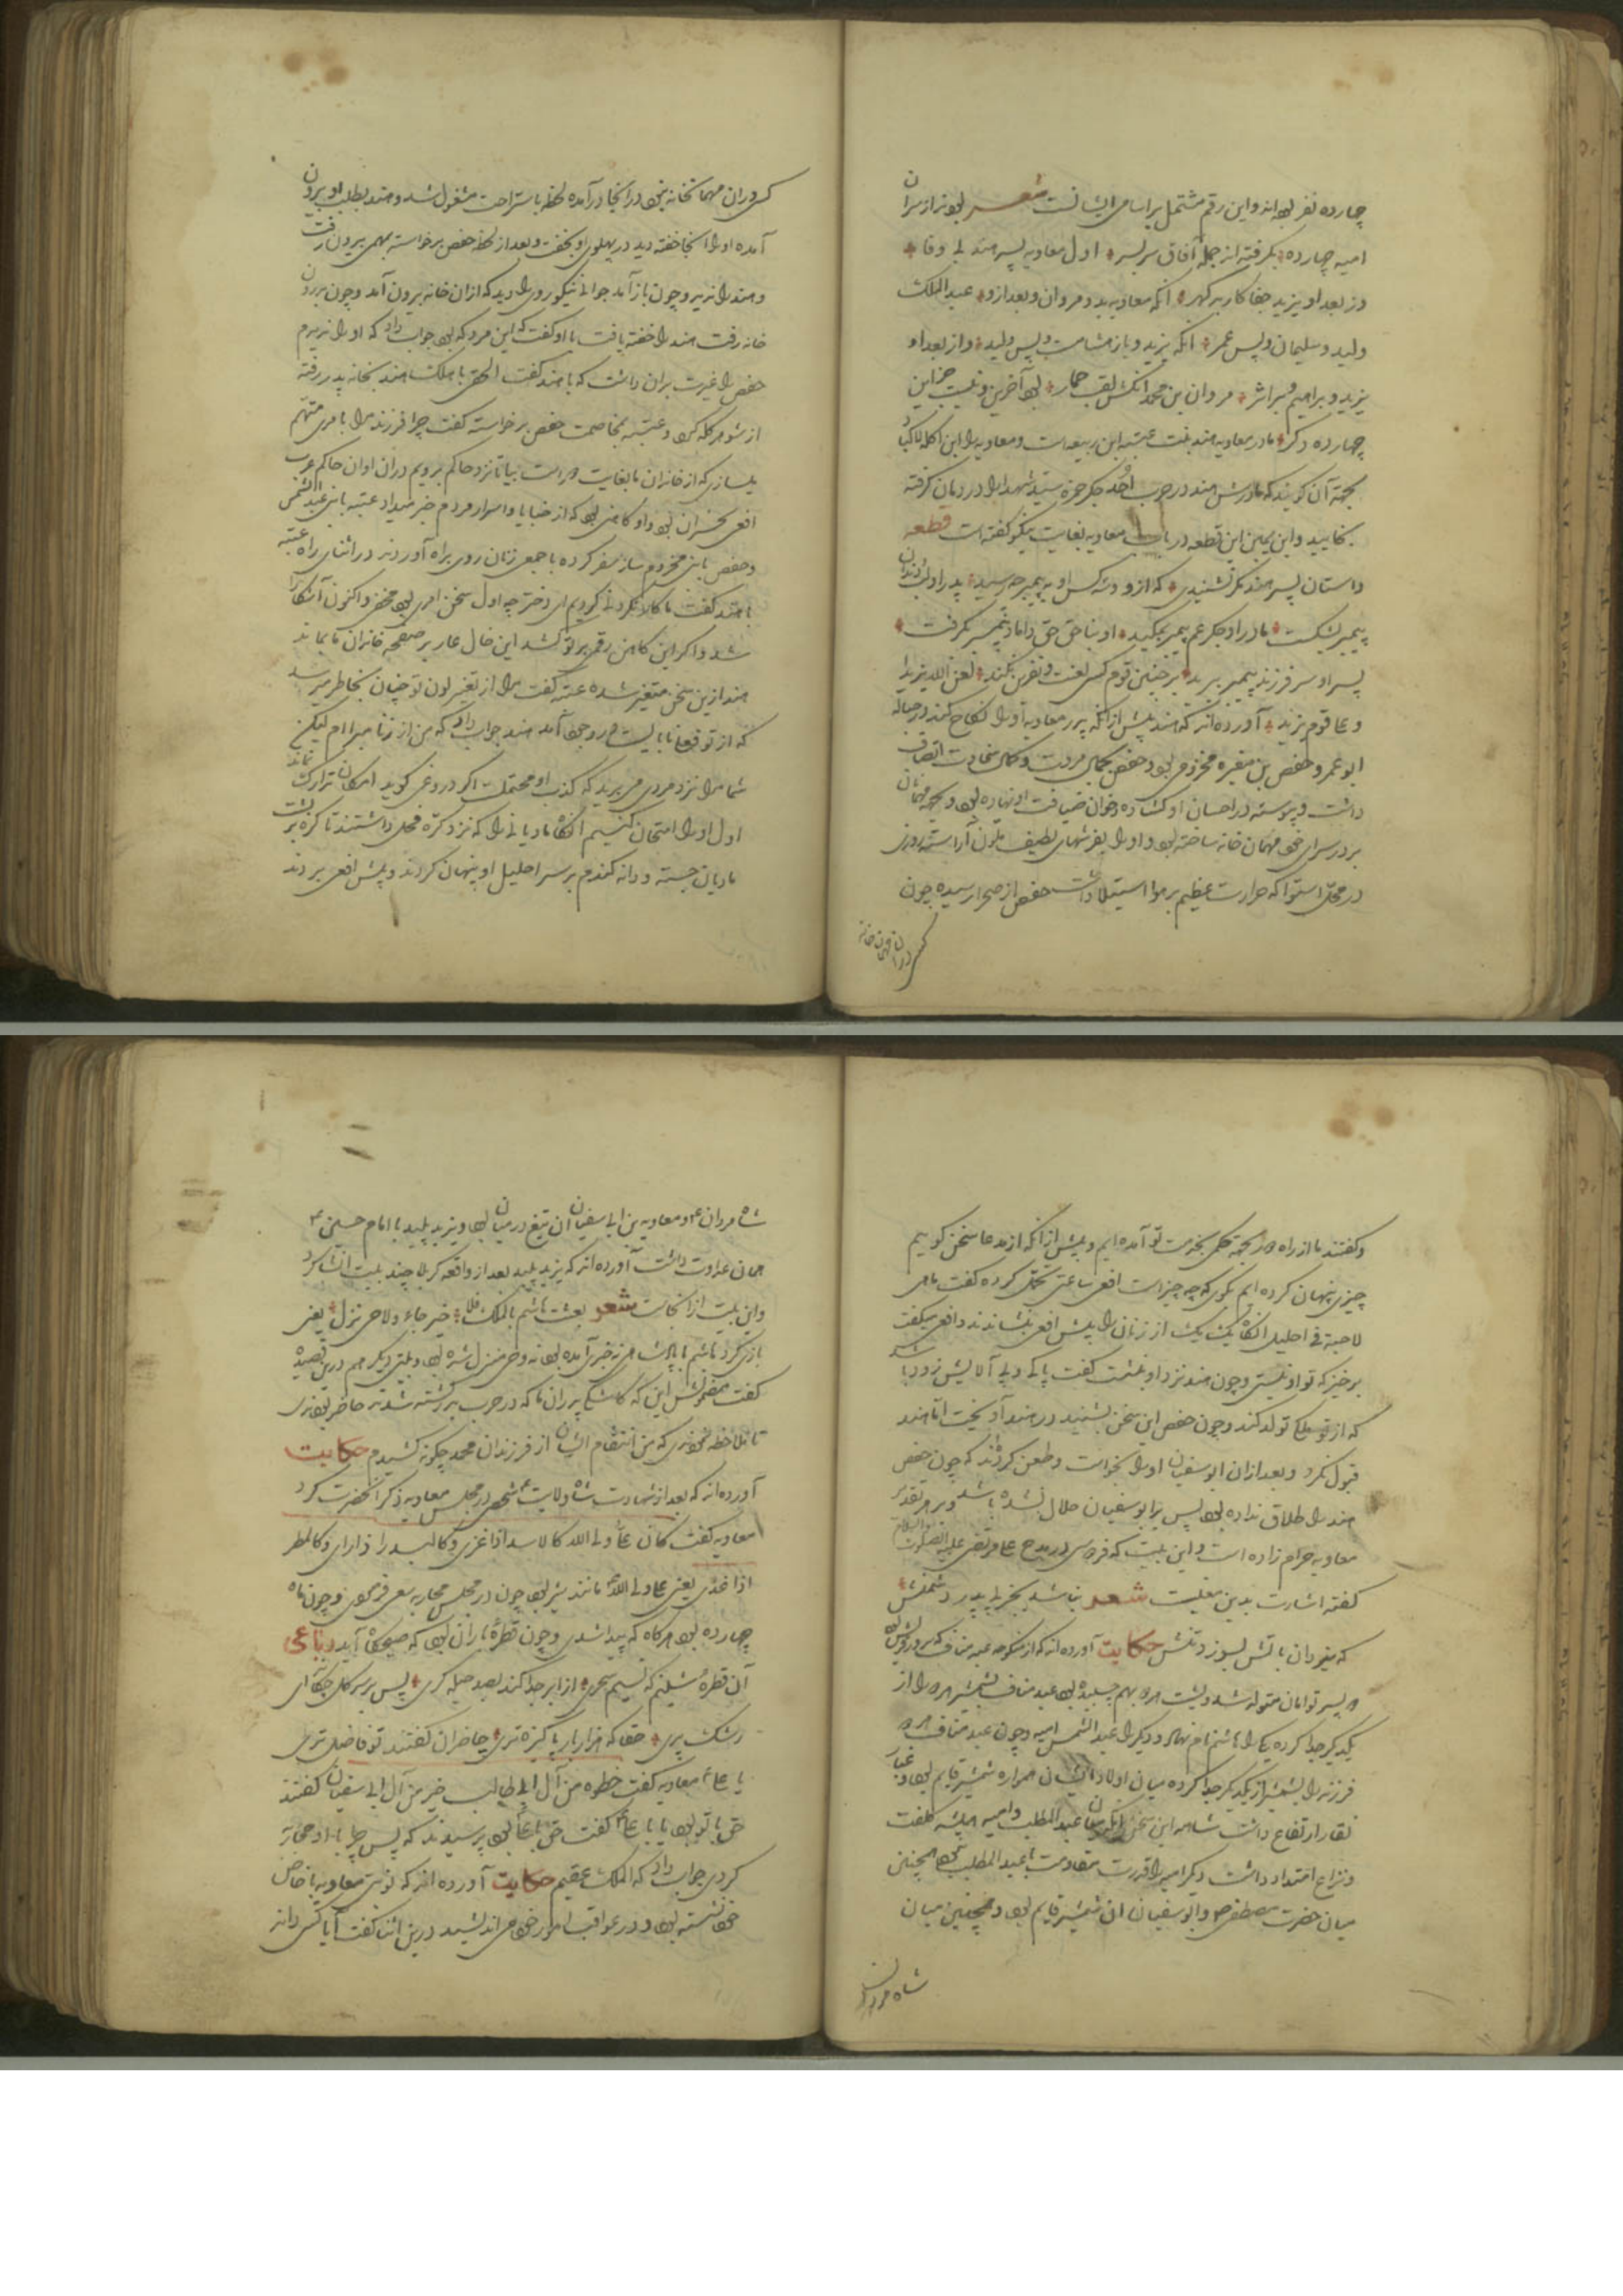 چهارده نفر بوده‌اند و این رقم مشتمل بر اسامی ایشانست شعر بودند از سران
امیه چهارده بگرفته‌اند جمله آفاق سربسر اول معاویه پسر هند بی وفا
وز بعد او یزید جفا کار بد گهر آنکه معاویه بد و مروان و بعد ازو عبد الملک
ولید و سلیمان و پس عمر آنکه یزید و باز هشامست و پس ولید و از بعد او
یزید و براهیم مروان بن محمد آنکش لقب حمار بود آخرین و نیست جز این
چهارده دکر مادر معاویه هند بنت عتبه ابن ربیعه است و معاویه را ابن اکله الاکباد
بجهة آن کویند که مادرش هند در حرب احد جکر حمزه سید شهدا را در دهان کرفته
بخایید و ابن یمین این قطعه در باب معاویه بغایت نیکو کفته است قطعه
داستان پسر هند مکر نشنیدی که ازو و سه کس او به پیمبر چه رسید پدر او دندان
پیمبر بشکست مادر او جکر عم پیمبر بمکید او بناحق حق داماد پیمبر بکرفت
پسر او سر فرزند پیمبر ببرید بر چنین قوم کسی لعنت و نفرین نکند لعن الله یزیدا
و علی قوم یزید آورده‌اند که هند پیش از آنکه پدر معاویه او را نکاح کند در حباله
ابو عمرو حفص بن مغیره مخزومی بود و حفص بکمال مروت و کمال سخاوت اتصاف
داشت و پیوسته در احسان او کشاده و خوان ضیافت او نهاده بود و بجهة مهمان
بر در سرای خود مهمان خانه ساخته بود و او را بفرشهای لطیف ملون آراسته روزی
در محل استوا که حرارت عظیم بر هوا استیلا داشت حفص از صحرا رسیده چون
کسی در ان مهمان خانه
کسی در ان مهمانخانه نبود در آنجا درآمده لحظه باستراحت مشغول شد و هند بطلب او بیرون
آمده او را آنجا خفته دید در پهلوی او بخفت و بعد از لحظه حفص برخاسته بمهمی بیرون رفت
و هند را ندید و چون باز آمد جوانی نیکو روی را دید که از ان خانه بیرون آمد و چون بدرون
خانه رفت هند را خفته یافت با او کفت که این مرد که بود جواب داد که او را ندیدم
حفص را غیرت بران داشت که با هند کفت الحقی باهلک هند بخانه پدر رفته
از شوهر کله کرد و عتبه بمخاصمت حفص برخاسته کفت چرا فرزند مرا بامری متهم
میسازی که از خاندان ما بغایت دور است بیا تا نزد حاکم برویم در ان اوان حاکم عرب
افعی نجران بود و او کاهنی بود که از خبایا و اسرار مردم خبر میداد عتبه با بنی عبد الشمس
و حفص با بنی مخزوم ساز سفر کرده با جمعی زنان روی براه آوردند در اثنای راه عتبه
با هند کفت ای دختر چه اول سخن امری بود مخفی و اکنون آشکارا
شد و اکر این کاهن رقم بر تو کشد این خال عار بر صفحه خاندان ما بماند
هند ازین سخن متغیر شده عتبه کفت مرا از تغیر لون تو چنان بخاطر میرسد
که از تو فعل نابایست در وجود آمد هند جواب داد که من از زنا مبرا ام لیکن
شما مرا نزد مردی می برید که کذب او محتملست اکر دروغی کوید امکان تدارک نماند
اول او را امتحان کنیم آنکاه مادیانی را که نزد کره فحلی داشتند تا کره بر پشت
مادیان جسته و دانه کندم بر سر احلیل او پنهان کردند و پیش افعی بردند
و کفتند ما از راه دور بجهة حکمی بخدمت تو آمده ایم و پیش از آنکه از مدعا سخن کوییم
چیزی پنهان کرده ایم بکوی که چه چیز است افعی ساعتی تخیل کرده کفت
لاحبة فی احلیل آنکاه یک یک از زنان را پیش افعی بنشاندند و افعی میکفت
برخیز که تو او نیستی و چون هند نزد او بنشست کفت پاکی و بی آلایش زود باشد
که از تو ملکی تولد کند و چون حفص این سخن بشنید در هند آویخت اما هند
قبول نکرد و بعد از ان ابو سفیان او را بخواست و طعن کردند که چون حفص
هند را طلاق نداده بود پس بر ابو سفیان حلال نشده باشد و بر هر تقدیر
معاویه حرام زاده است و این بیت که فردوسی در مدح علی مرتضی علیه الصلوة و السلام
کفته اشارت بدین معنیست شعر نباشد بجز بی پدر دشمنش
که یزدان باتش بسوزد تنش حکایت آورده‌اند که از منکوحه عبد مناف
دو پسر توامان متولد شد و پشت هر دو بهم چسبیده بود عبد مناف بشمشیر هر دو را از
یکدیکر جدا کرده یکی را هاشم نام نهاد و دیکر را عبد الشمس امیه و چون عبد مناف هر دو
فرزند را بشمشیر از یکدیکر جدا کرده میان اولاد ایشان همواره شمشیر قایم بود و غبار
نقار ارتفاع داشت شاهد این سخن آنکه میان عبد المطلب و امیه همیشه کلفت
و نزاع امتداد داشت دیکر امیه را قدرت مقاومت با عبد المطلب نبود همچنین
میان حضرت مصطفی ص و ابو سفیان آن شمشیر قایم بود و همچنین میان
شاه مردان
شاه مردان ع و معاویه بن ابی سفیان آن تیغ در میان بود و یزید پلید با امام حسین ع
همان عداوت داشت آورده‌اند که یزید پلید بعد از واقعه کربلا چند بیت انشا کرد
و این بیت از انجاست شعر لعبت هاشم بالملک فلا خبر جاء ولا وحی نزل یعنی
بازی کرد هاشم با پادشاهی نه خبری آمده بود نه وحی منزل شده بود و بیتی دیکر هم درین قصیده
کفت مضمونش این که کاشکی پدران ما که در حرب بدر کشته شدند حاضر بودندی
تا ملاحظه نمودندی که من انتقام ایشان از فرزندان محمد چکونه کشیدم حکایت
آورده‌اند که بعد از شهادت شاه ولایت ع شخصی در مجلس معاویه ذکر آنحضرت کرد
معاویه کفت کان علی و لی الله کالاسد اذا غزی و کالبدر اذا رای و کالمطر
اذا غدی یعنی علی ولی الله مانند شیر بود چون در مجلس محاربه سعی فرمودی و چون ماه
چهارده بود هر کاه که پیدا شدی و چون قطره باران بود که صبحکاه آید رباعی
آن قطره شبنم که نسیم سحری از ابر جدا کند بصد حیله کری پس بر سر کل چکد ای
رشک پری حقا که هزار بار پاکیزه تری حاضران کفتند تو فاضل تری
یا علی ع معاویه کفت خطوه من آل ابی طالب خیر من آل ابی سفیان کفتند
حق با تو بود یا با علی ع کفت حق با علی بود پرسیدند که پس چرا با او محاربه
کردی جواب داد که الملک عقیم حکایت آورده‌اند که نوبتی معاویه با خاص
خود نشسته بود و در عواقب امور خود می اندیشید درین اثنا کفت آیا کسی داند